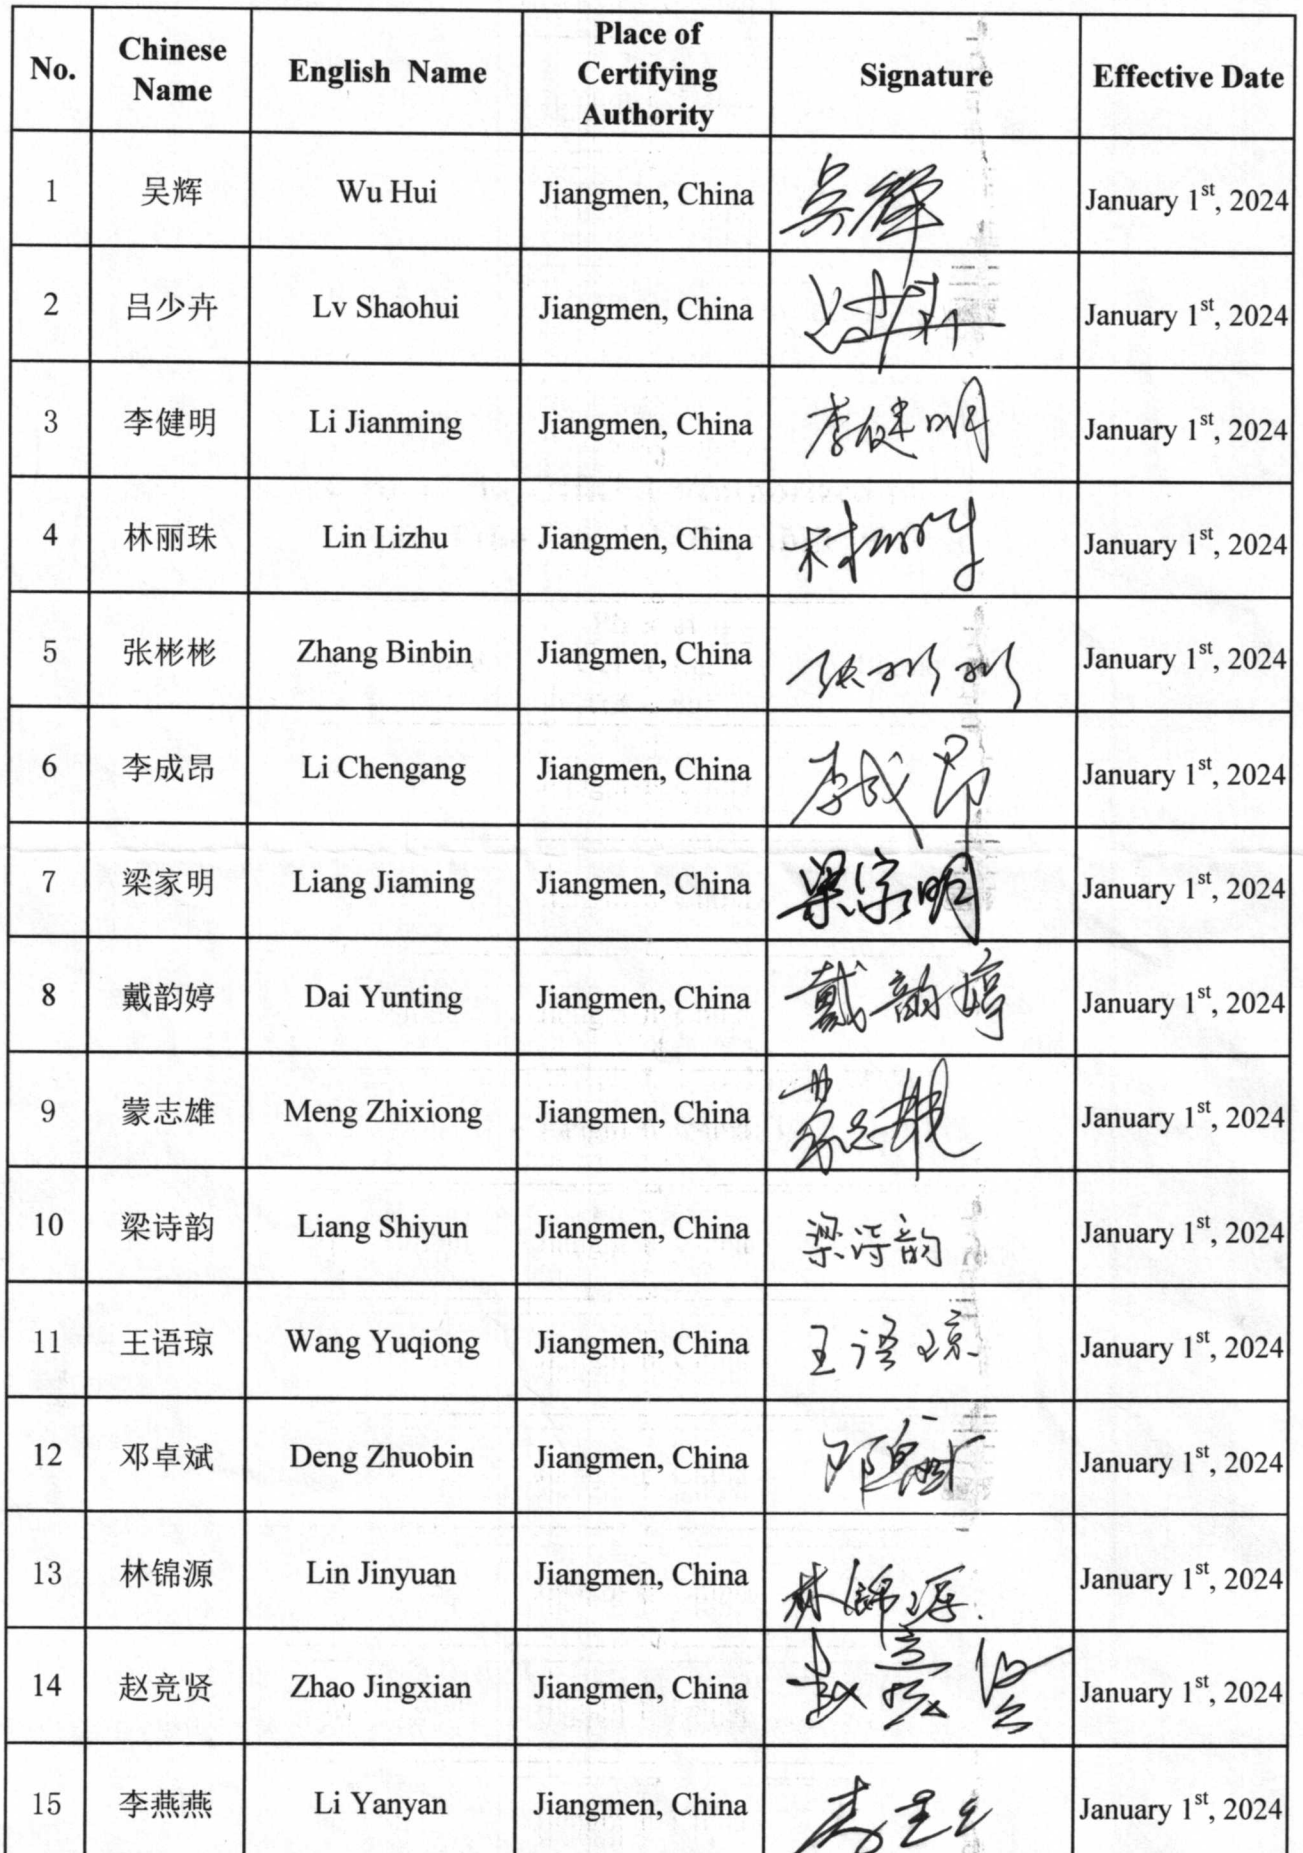 No. Chinese Name English Name Place of Certifying Authority Signature Effective Date
1 吴辉 Wu Hui Jiangmen, China 吴辉 January 1st, 2024
2 吕少卉 Lv Shaohui Jiangmen, China January 1st, 2024
3 李健明 Li Jianming Jiangmen, China 李健明 January 1st, 2024
4 林丽珠 Lin Lizhu Jiangmen, China January 1st, 2024
5 张彬彬 Zhang Binbin Jiangmen, China 张彬彬 January 1st, 2024
6 李成昂 Li Chengang Jiangmen, China 李成昂 January 1st, 2024
7 梁家明 Liang Jiaming Jiangmen, China 梁家明 January 1st, 2024
8 戴韵婷 Dai Yunting Jiangmen, China 戴韵婷 January 1st, 2024
9 蒙志雄 Meng Zhixiong Jiangmen, China January 1st, 2024
10 梁诗韵 Liang Shiyun Jiangmen, China 梁诗韵 January 1st, 2024
11 王语琼 Wang Yuqiong Jiangmen, China 王语琼 January 1st, 2024
12 邓卓斌 Deng Zhuobin Jiangmen, China 邓卓斌 January 1st, 2024
13 林锦源 Lin Jinyuan Jiangmen, China 林锦源 January 1st, 2024
14 赵竞贤 Zhao Jingxian Jiangmen, China 赵竞贤 January 1st, 2024
15 李燕燕 Li Yanyan Jiangmen, China January 1st, 2024